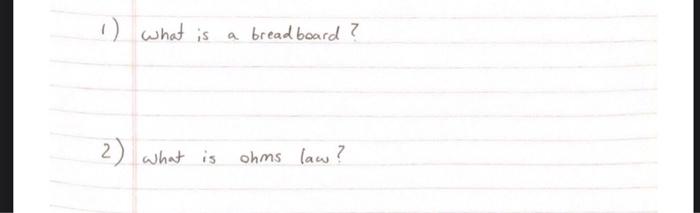 1) what is a breadboard?
2) what is ohms law?